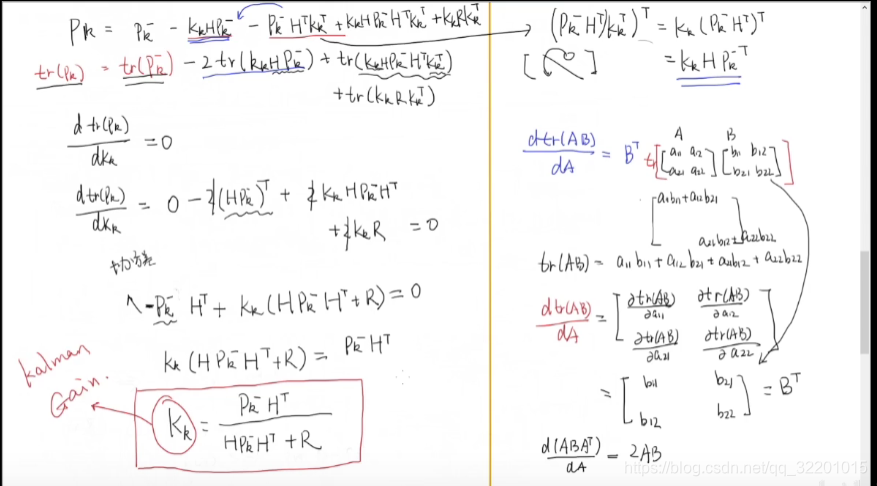 Pk = Pk⁻ - KkHPk⁻ - Pk⁻HᵀKkᵀ + KkHPk⁻HᵀKkᵀ + KkRKkᵀ
tr(Pk) = tr(Pk⁻) - 2tr(KkHPk⁻) + tr(KkHPk⁻HᵀKkᵀ)
+tr(KkRKkᵀ)
d tr(Pk)/dKk = 0
d tr(Pk)/dKk = 0 - 2(HPk⁻)ᵀ + 2KkHPk⁻Hᵀ
+2KkR = 0
-Pk⁻Hᵀ + Kk(HPk⁻Hᵀ+R) = 0
Kk(HPk⁻Hᵀ+R) = Pk⁻Hᵀ
Kalman
Gain.
Kk = Pk⁻Hᵀ / HPk⁻Hᵀ+R
((Pk⁻Hᵀ)Kkᵀ)ᵀ = Kk(Pk⁻Hᵀ)ᵀ
= KkHPk⁻ᵀ
A B
dtr(AB)/dA = Bᵀ tr[[a11 a12 a21 a22][b11 b12 b21 b22]]
[a11b11+a12b21
a21b12+a22b22]
tr(AB) = a11b11+a12b21+a21b12+a22b22
dtr(AB)/dA = [∂tr(AB)/∂a11 ∂tr(AB)/∂a12
∂tr(AB)/∂a21 ∂tr(AB)/∂a22]
= [b11 b21
b12 b22] = Bᵀ
d(ABAᵀ)/dA = 2AB
https://blog.csdn.net/qq_32201015